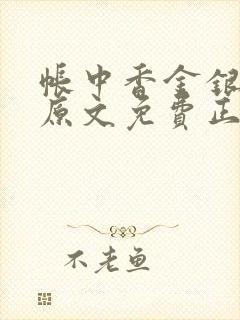 帐中香金银
原文免費正
不老鱼